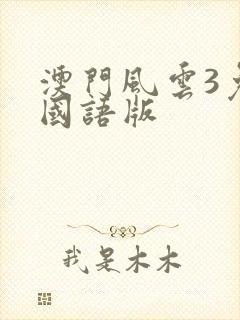 澳門風雲3
國語版
我是木木